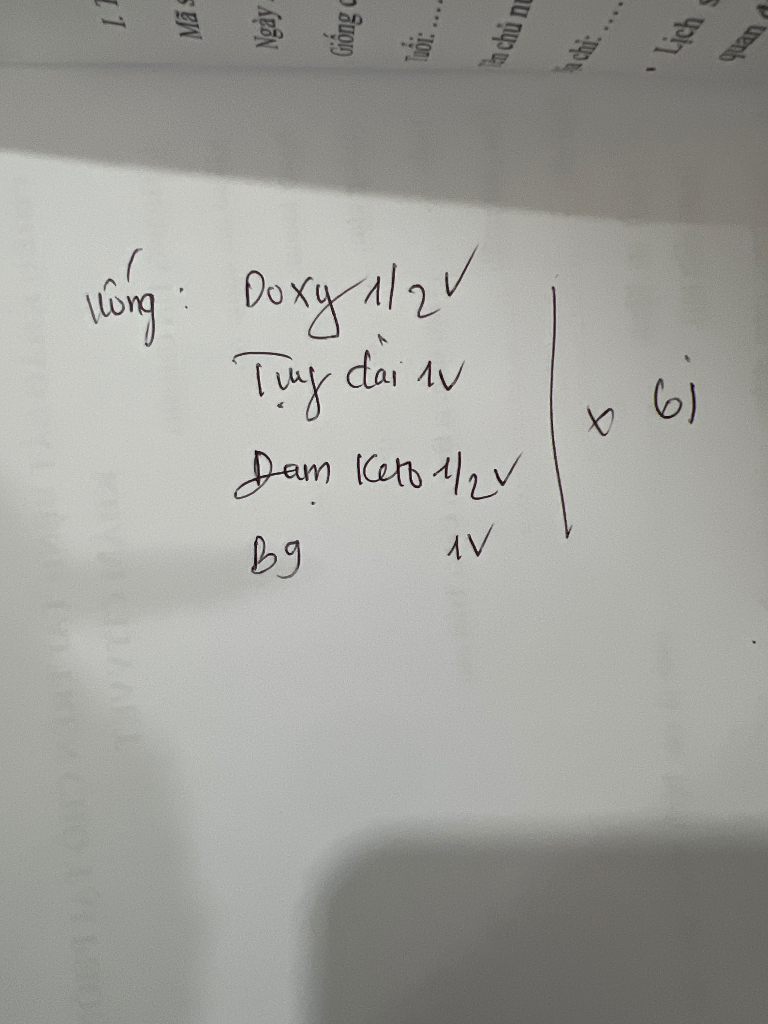 I.
Mã s
Ngày
Giống c
Tuổi: ....
ên chủ nu
ỉa chỉ: ....
Lịch s
quan
Uống : Doxy 1/2 V
Tụy đài 1V
Đạm Keto 1/2 V
B9 1V
x 6j